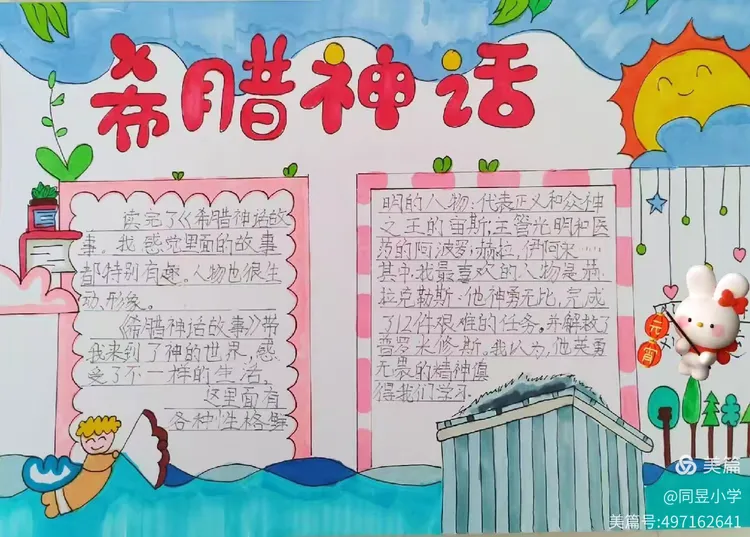 希腊神话
读完了《希腊神话故
事。我感觉里面的故事
都特别有趣。人物也很生
动、形象。
《希腊神话故事》带
我来到了神的世界,感
受了不一样的生活。
这里面有
各种性格鲜
明的人物:代表正义和众神
之王的宙斯;主管光明和医
药的阿波罗;赫拉,伊阿宋……
其中,我最喜欢的人物是赫
拉克勒斯.他神勇无比,完成
了12件艰难的任务。并解救了
普罗米修斯。我认为,他英勇
无畏的精神值
得我们学习.
元宵
美篇
@同昱小学
美篇号:497162641